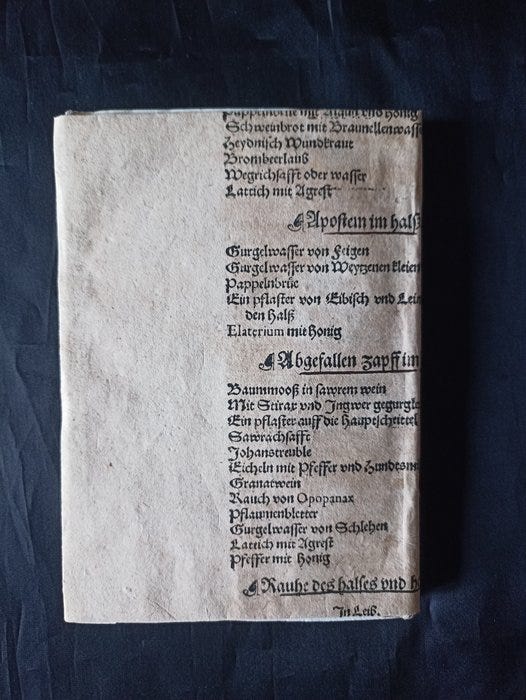 Pappelnbrüe mit Alaun vnd Honig
Schweinbrot mit Braunellenwass
Heydnisch Wundkraut
Brombeerlauß
Wegrichsafft oder wasser
Lattich mit Agrest
Apostem im halß
Gurgelwasser von Feigen
Gurgelwasser von Weytzenen kleien
Pappelnbrüe
Ein pflaster von Eibisch vnd Lein
den Halß
Elaterium mit Honig
Abgefallen zapff im
Baummooß in sawrem wein
Mit Stirax vnd Ingwer gegurgle
Ein pflaster auff die Hauptscheittel
Sawrachsafft
Johanstreuble
Eicheln mit Pfeffer vnd Hundesm
Granatwein
Rauch von Opopanax
Pflaumenbletter
Gurgelwasser von Schlehen
Lattich mit Agrest
Pfeffer mit Honig
Rauhe des halses vnd h
In Leib.